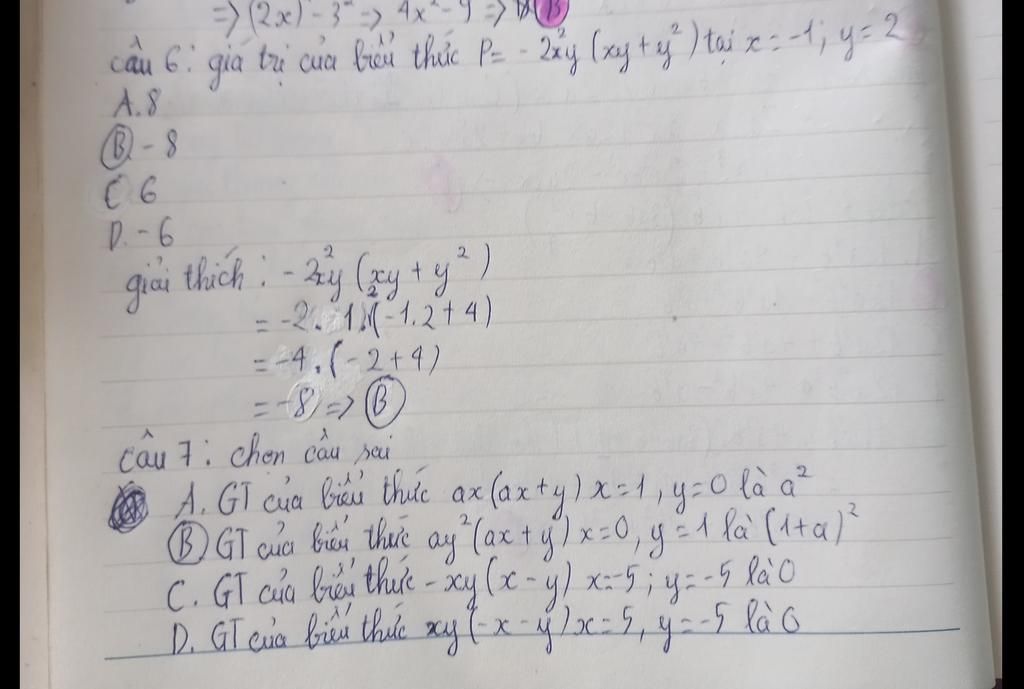 => (2x)² - 3² => 4x² - 9 => B
câu 6: giá trị của biểu thức P = - 2x²y (xy + y²) tại x = -1; y = 2
A. 8
B - 8
C 6
D. - 6
giải thích: - 2x²y (xy + y²)
= -2. 1.2(-1.2 + 4)
= -4. (-2 + 4)
= -8 => B
câu 7: chọn câu sai
A. GT của biểu thức ax(ax+y) x=1, y=0 là a²
B GT của biểu thức ay²(ax+y) x=0, y=1 là (1+a)²
C. GT của biểu thức -xy(x-y) x=-5; y=-5 là 0
D. GT của biểu thức xy(-x-y) x=5, y=-5 là 0